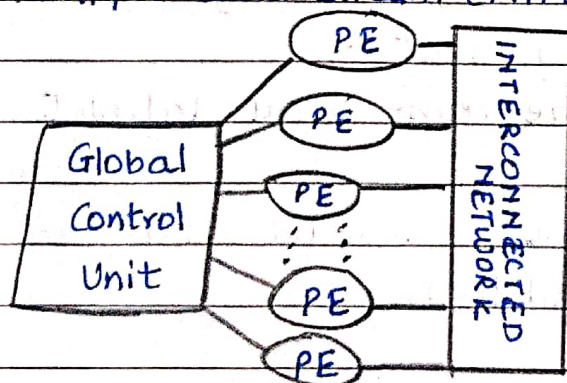 PE
PE
Global
Control
Unit
PE
PE
PE
INTERCONNECTED
NETWORK